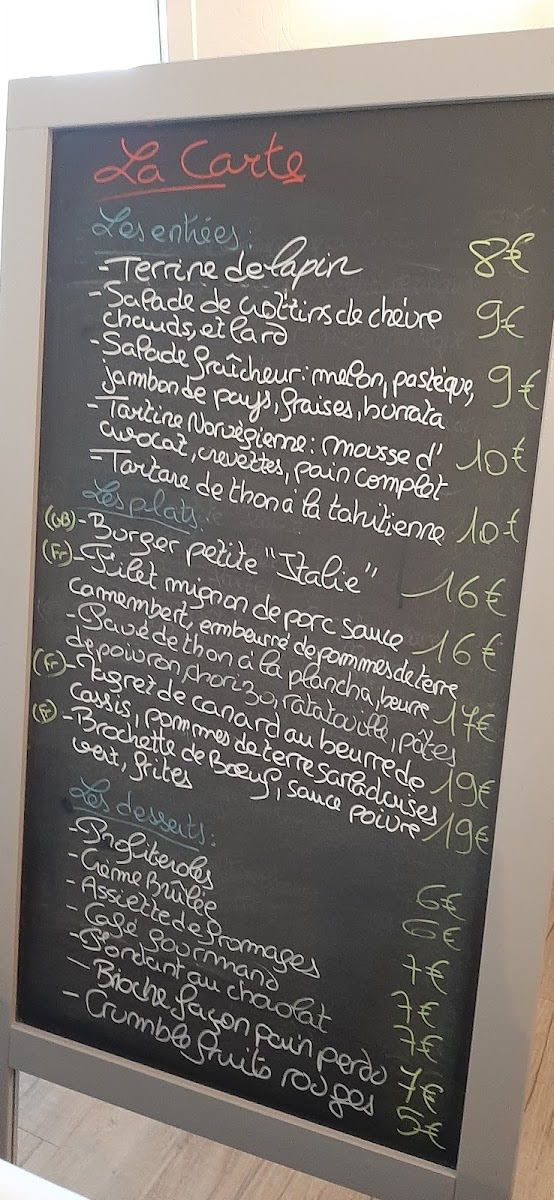 La Carte
Les entrées:
- Terrine de lapin 8€
- Salade de crottins de chèvre
chauds, et lard 9€
- Salade fraîcheur: melon, pastèque,
jambon de pays, fraises, burrata 9€
- Tartine Norvégienne: mousse d'
avocat, crevettes, pain complet 10€
- Tartare de thon à la tahitienne 10€
Les plats:
(GB) - Burger petite "Italie" 16€
(Fr) - Filet mignon de porc sauce
camembert, embeurré de pommes de terre 16€
- Pavé de thon à la plancha, beurre
de poivron, chorizo, ratatouille, pâtes 17€
(Fr) - Magret de canard au beurre de
cassis, pommes de terre sarladaises 19€
(Fr) - Brochette de Boeuf, sauce poivre
vert, frites 19€
Les desserts:
- Profiteroles 6€
- Crème Brûlée 6€
- Assiette de fromages 7€
- Café gourmand 7€
- Fondant au chocolat 7€
- Brioche façon pain perdu 7€
- Crumble fruits rouges 5€